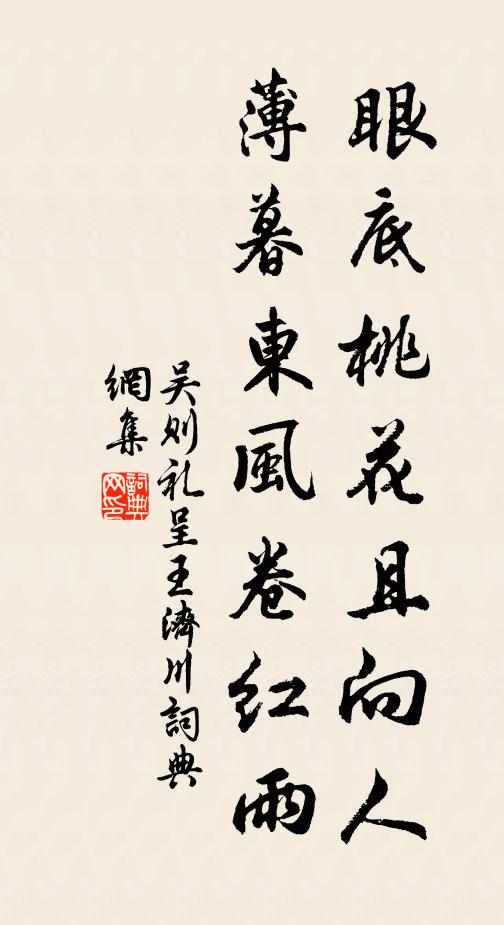 眼底桃花且向人
薄暮東風卷红雨
吴则礼呈王濟川詞典
網集
詞典
网印